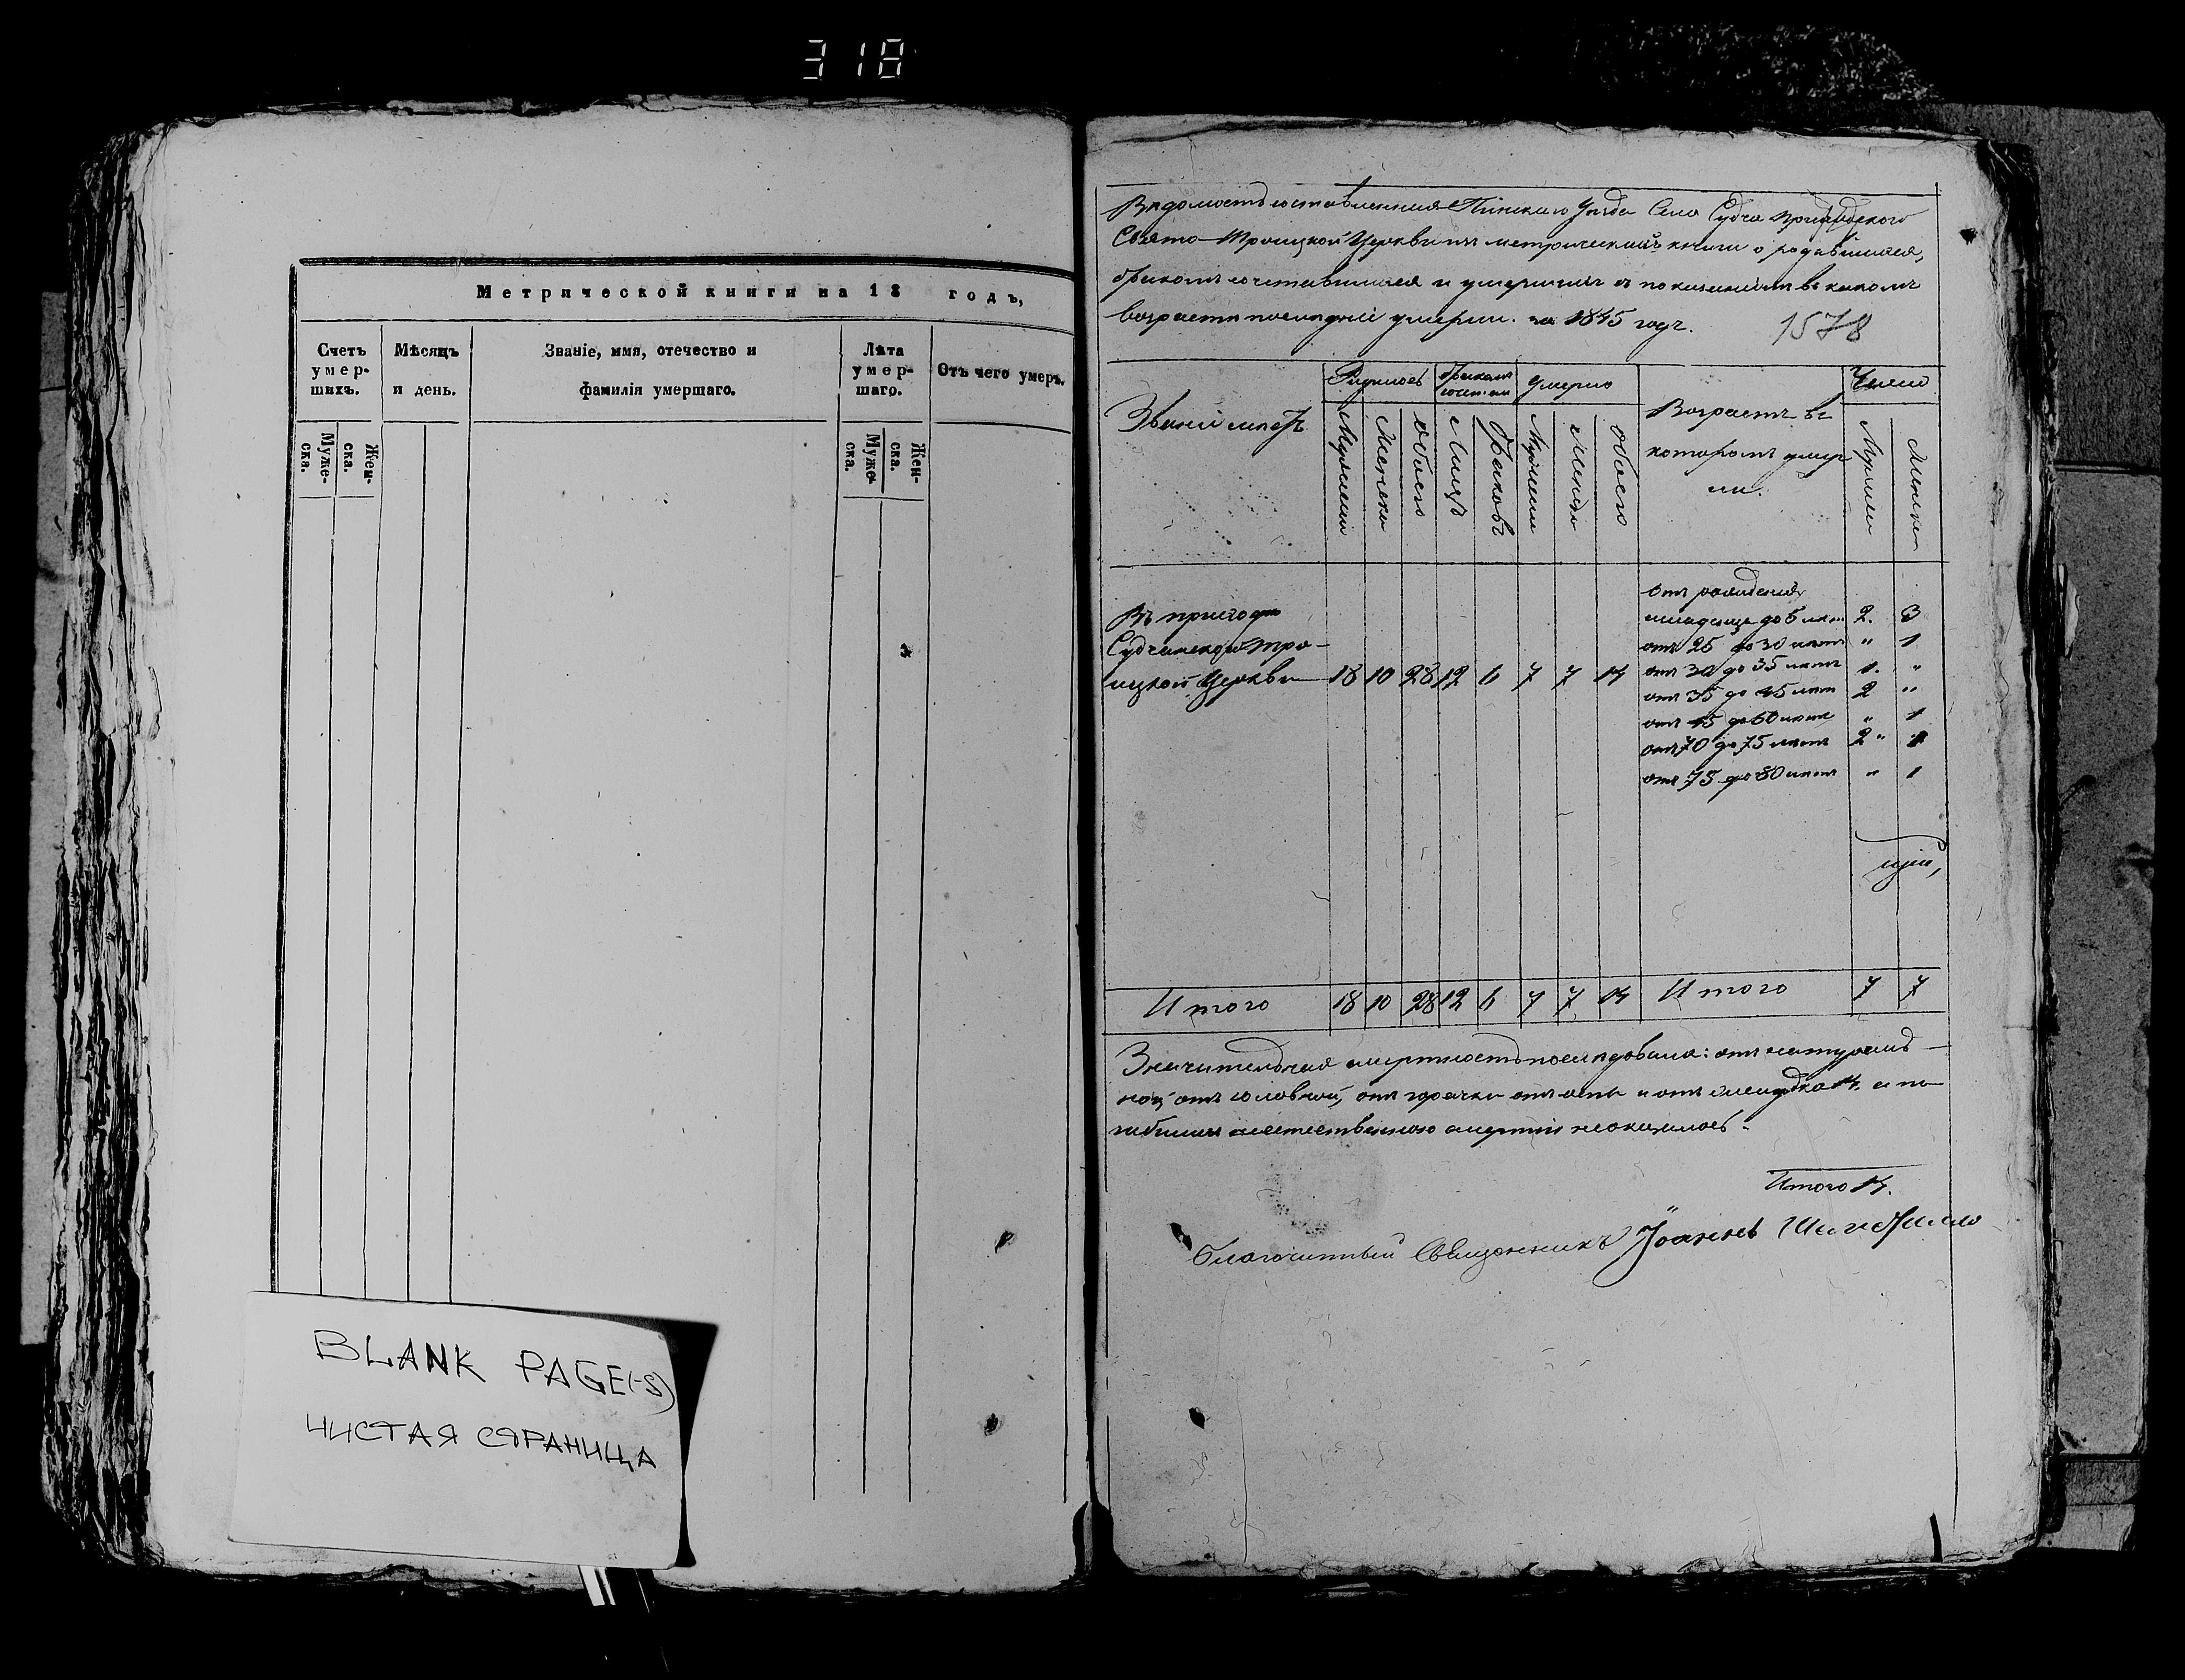 318
Метрической книги на 18 годъ,
Счетъ умер-шихъ.
Мѣсяцъ и день.
Званіе, имя, отечество и фамилія умершаго.
Лѣта умер-шаго.
Отъ чего умеръ.
Муже-ска.
Жен-ска.
Муже-ска.
Жен-ска.
BLANK PAGE(-S)
ЧИСТАЯ СТРАНИЦА
Вѣдомость составленная Пинскаго Уѣзда Села Судча приходского
Свято-Троицкой Церкви изъ метрическихъ книги о родившихся,
бракомъ сочетавшихся и умершихъ съ показаніемъ въ какомъ
возрастѣ послѣдніе умерли. за 1845 годъ.
1578
Званіе мѣстъ
Родилось
бракомъ сочет
Умерло
Возрастъ въ
которомъ умер
ли.
Число
Мужеска
Женска
обоего
Лицъ
браковъ
Мужеска
Женска
обоего
Мужеска
Женска
Въ приходѣ
Судчанской Тро-
ицкой Церкви 18 10 28 12 6 7 7 14
отъ рожденія
младенца до 5 лѣтъ 2. 3
отъ 25 до 30 лѣтъ " 1
отъ 30 до 35 лѣтъ 1. "
отъ 35 до 45 лѣтъ 2 "
отъ 45 до 60 лѣтъ " 1
отъ 70 до 75 лѣтъ 2 " 1
отъ 75 до 80 лѣтъ " 1
Итого 18 10 28 12 6 7 7 14 Итого 7 7
Значительная смертность послѣдовала: отъ натураль-
ной, отъ головной, отъ горячки отъ оспы и отъ 14. а по-
гибшихъ неестественною смертію неоказалось.
Итого 14.
благочинный Священникъ Іоаннъ